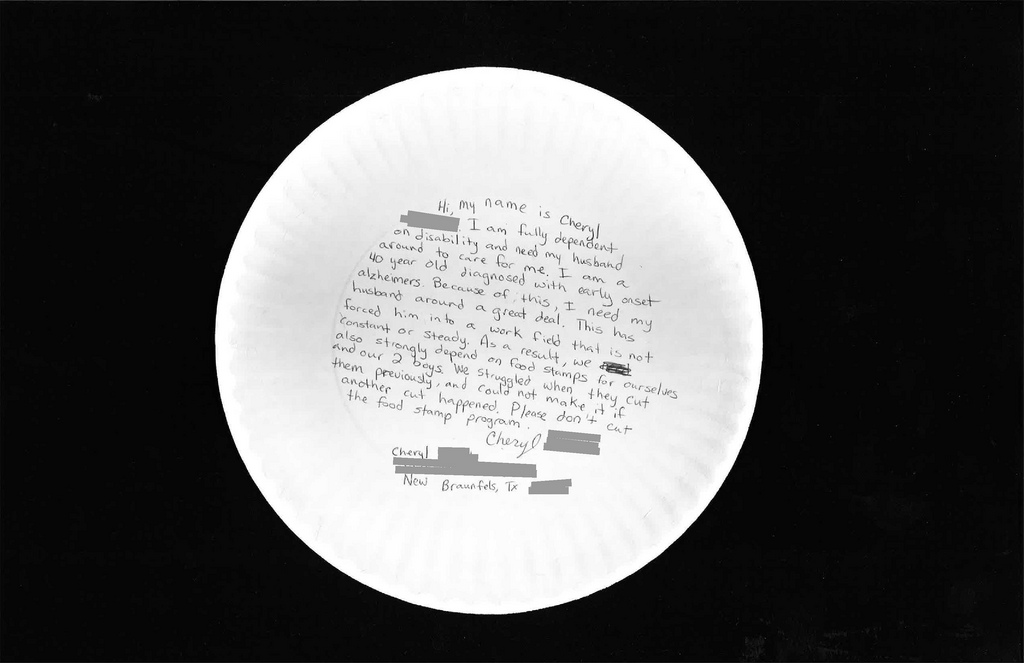 Hi, my name is Cheryl
. I am fully dependent
on disability and need my husband
around to care for me. I am a
40 year old diagnosed with early onset
alzheimers. Because of this, I need my
husband around a great deal. This has
forced him into a work field that is not
constant or steady. As a result, we
also strongly depend on food stamps for ourselves
and our 2 boys. We struggled when they cut
them previously, and could not make it if
another cut happened. Please don't cut
the food stamp program.
Cheryl
Cheryl
New Braunfels, Tx